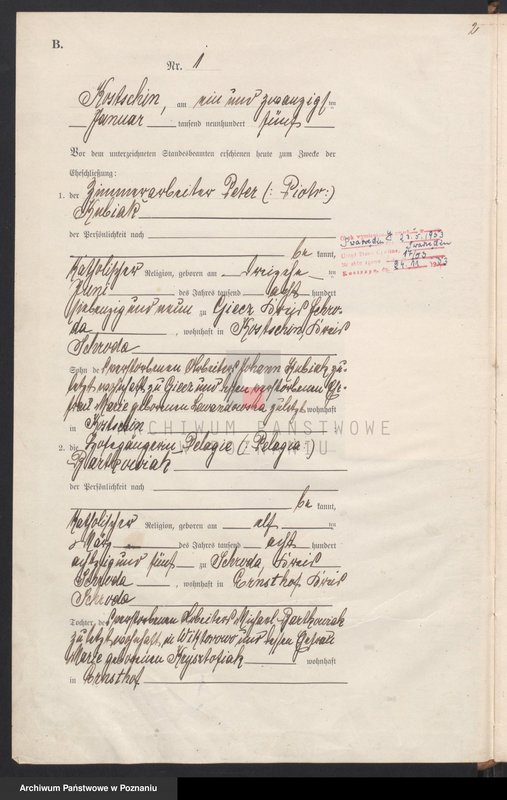 2
B.
Nr. 1
Kostschin, am ein und zwanzigsten
Januar tausend neunhundert fünf
Vor dem unterzeichneten Standesbeamten erschienen heute zum Zwecke der
Eheschließung:
1. der Zimmerarbeiter Peter (: Piotr :)
Kubiak
der Persönlichkeit nach
be kannt,
Katholischer Religion, geboren am dreizehnten
Juni des Jahres tausend acht hundert
siebenzig und neun zu Giecz Kreis Schro-
da, wohnhaft in Kostschin, Kreis
Schroda
Sohn des verstorbenen Arbeiters Johann Kubiak zu-
letzt wohnhaft zu Giecz und dessen verstorbenen Ehe-
frau Marie geborenen Lewandowska zuletzt wohnhaft
in Kostschin
2. die Hofegängerin Pelagie (: Pelagia :)
Bartkowiak
der Persönlichkeit nach
be kannt,
Katholischer Religion, geboren am elf ten
März des Jahres tausend acht hundert
achtzig und fünf zu Schroda, Kreis
Schroda, wohnhaft in Ernsthof Kreis
Schroda
Tochter des verstorbenen Arbeiters Michael Bartkowiak
zuletzt wohnhaft in Wiktorowo und dessen Ehefrau
Marie geborenen Krysztofiak wohnhaft
in Ernsthof
ARCHIWUM PAŃSTWOWE
W POZNANIU
Archiwum Państwowe w Poznaniu